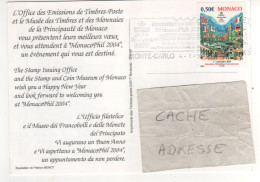 L'Office des Emissions de Timbres-Poste
et le Musée des Timbres et des Monnaies
de la Principauté de Monaco
vous présentent leurs meilleurs vœux
et vous attendent à "MonacoPhil 2004",
un évènement qui vous est destiné.
The Stamp Issuing Office
and the Stamp and Coin Museum of Monaco
wish you a Happy New Year
and look forward to welcoming you
at "MonacoPhil 2004".
L'Ufficio filatelico
e il Museo dei Francobolli e delle Monete
del Principato
Vi augurano un Buon Anno
e Vi aspettano a "MonacoPhil 2004",
un appuntamento da non perdere.
0,50€ MONACO
MONTE-CARLO
CACHE
ADRESSE